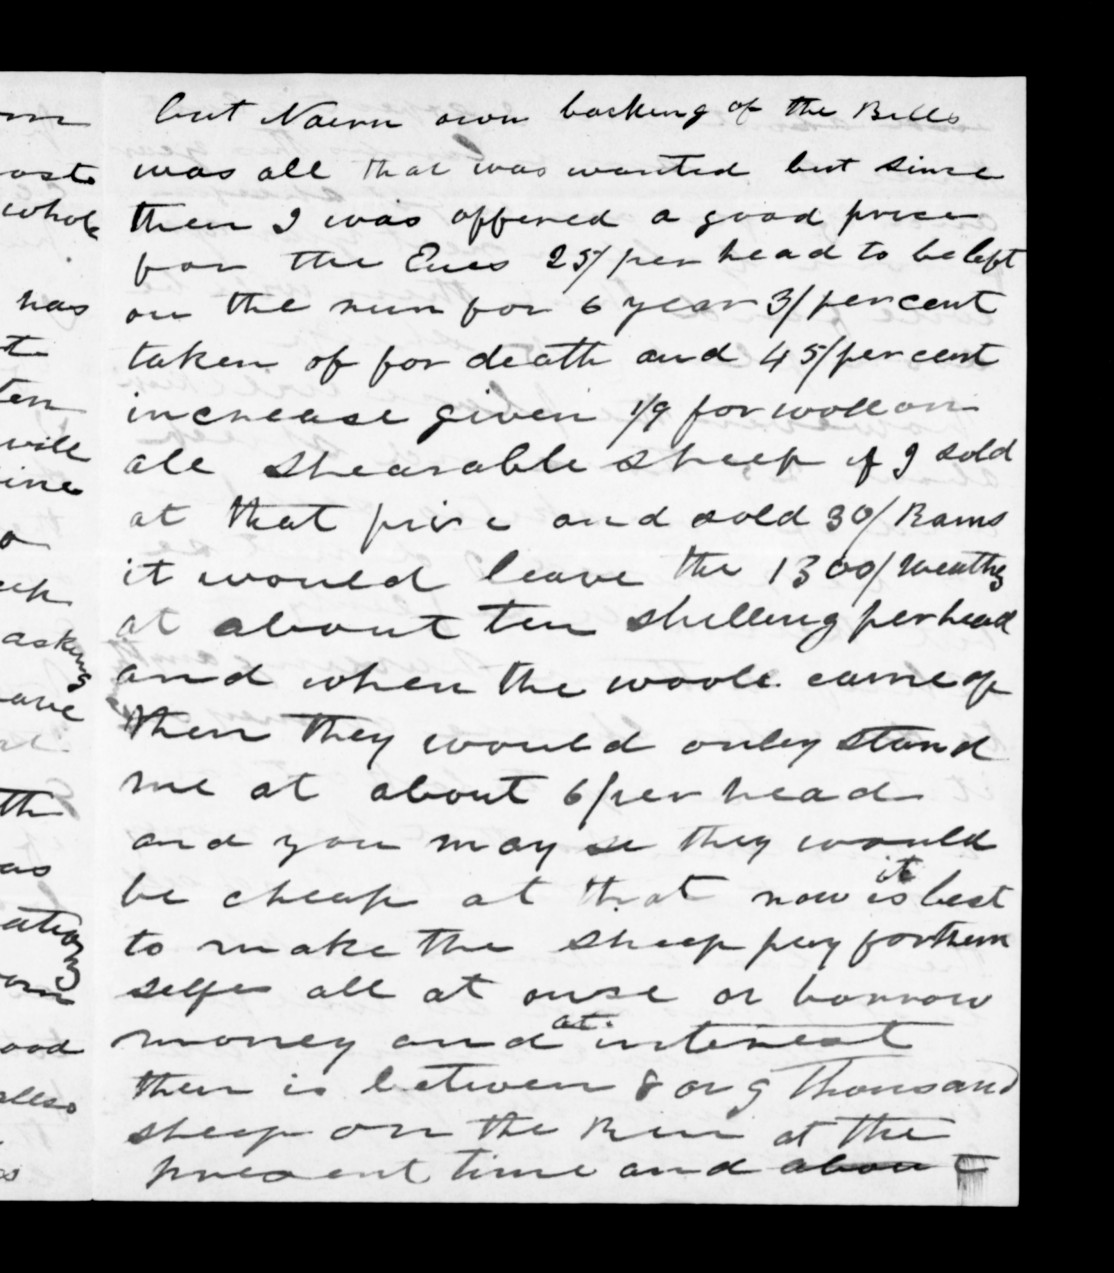 but Nairn own backing of the Bills
was all that was wanted but since
then I was offered a good price
for the Eues 25/ per head to be left
on the run for 6 year 3/ per cent
taken of for death and 45/ per cent
increase given 1/9 for wolle on
all shearable sheep if I sold
at that price and sold 30/ Rams
it would leave the 1300/
at about ten shelling per head
and when the woole came of
then they would onley stand
me at about 6/ per head
and you may se they would
be cheap at that now it is best
to make the sheep pay for them
selfes all at onse or borrow
money and at interest
ther is between 8 or 9 Thousand
sheep on the Run at the
present time and abou
has
will
asking